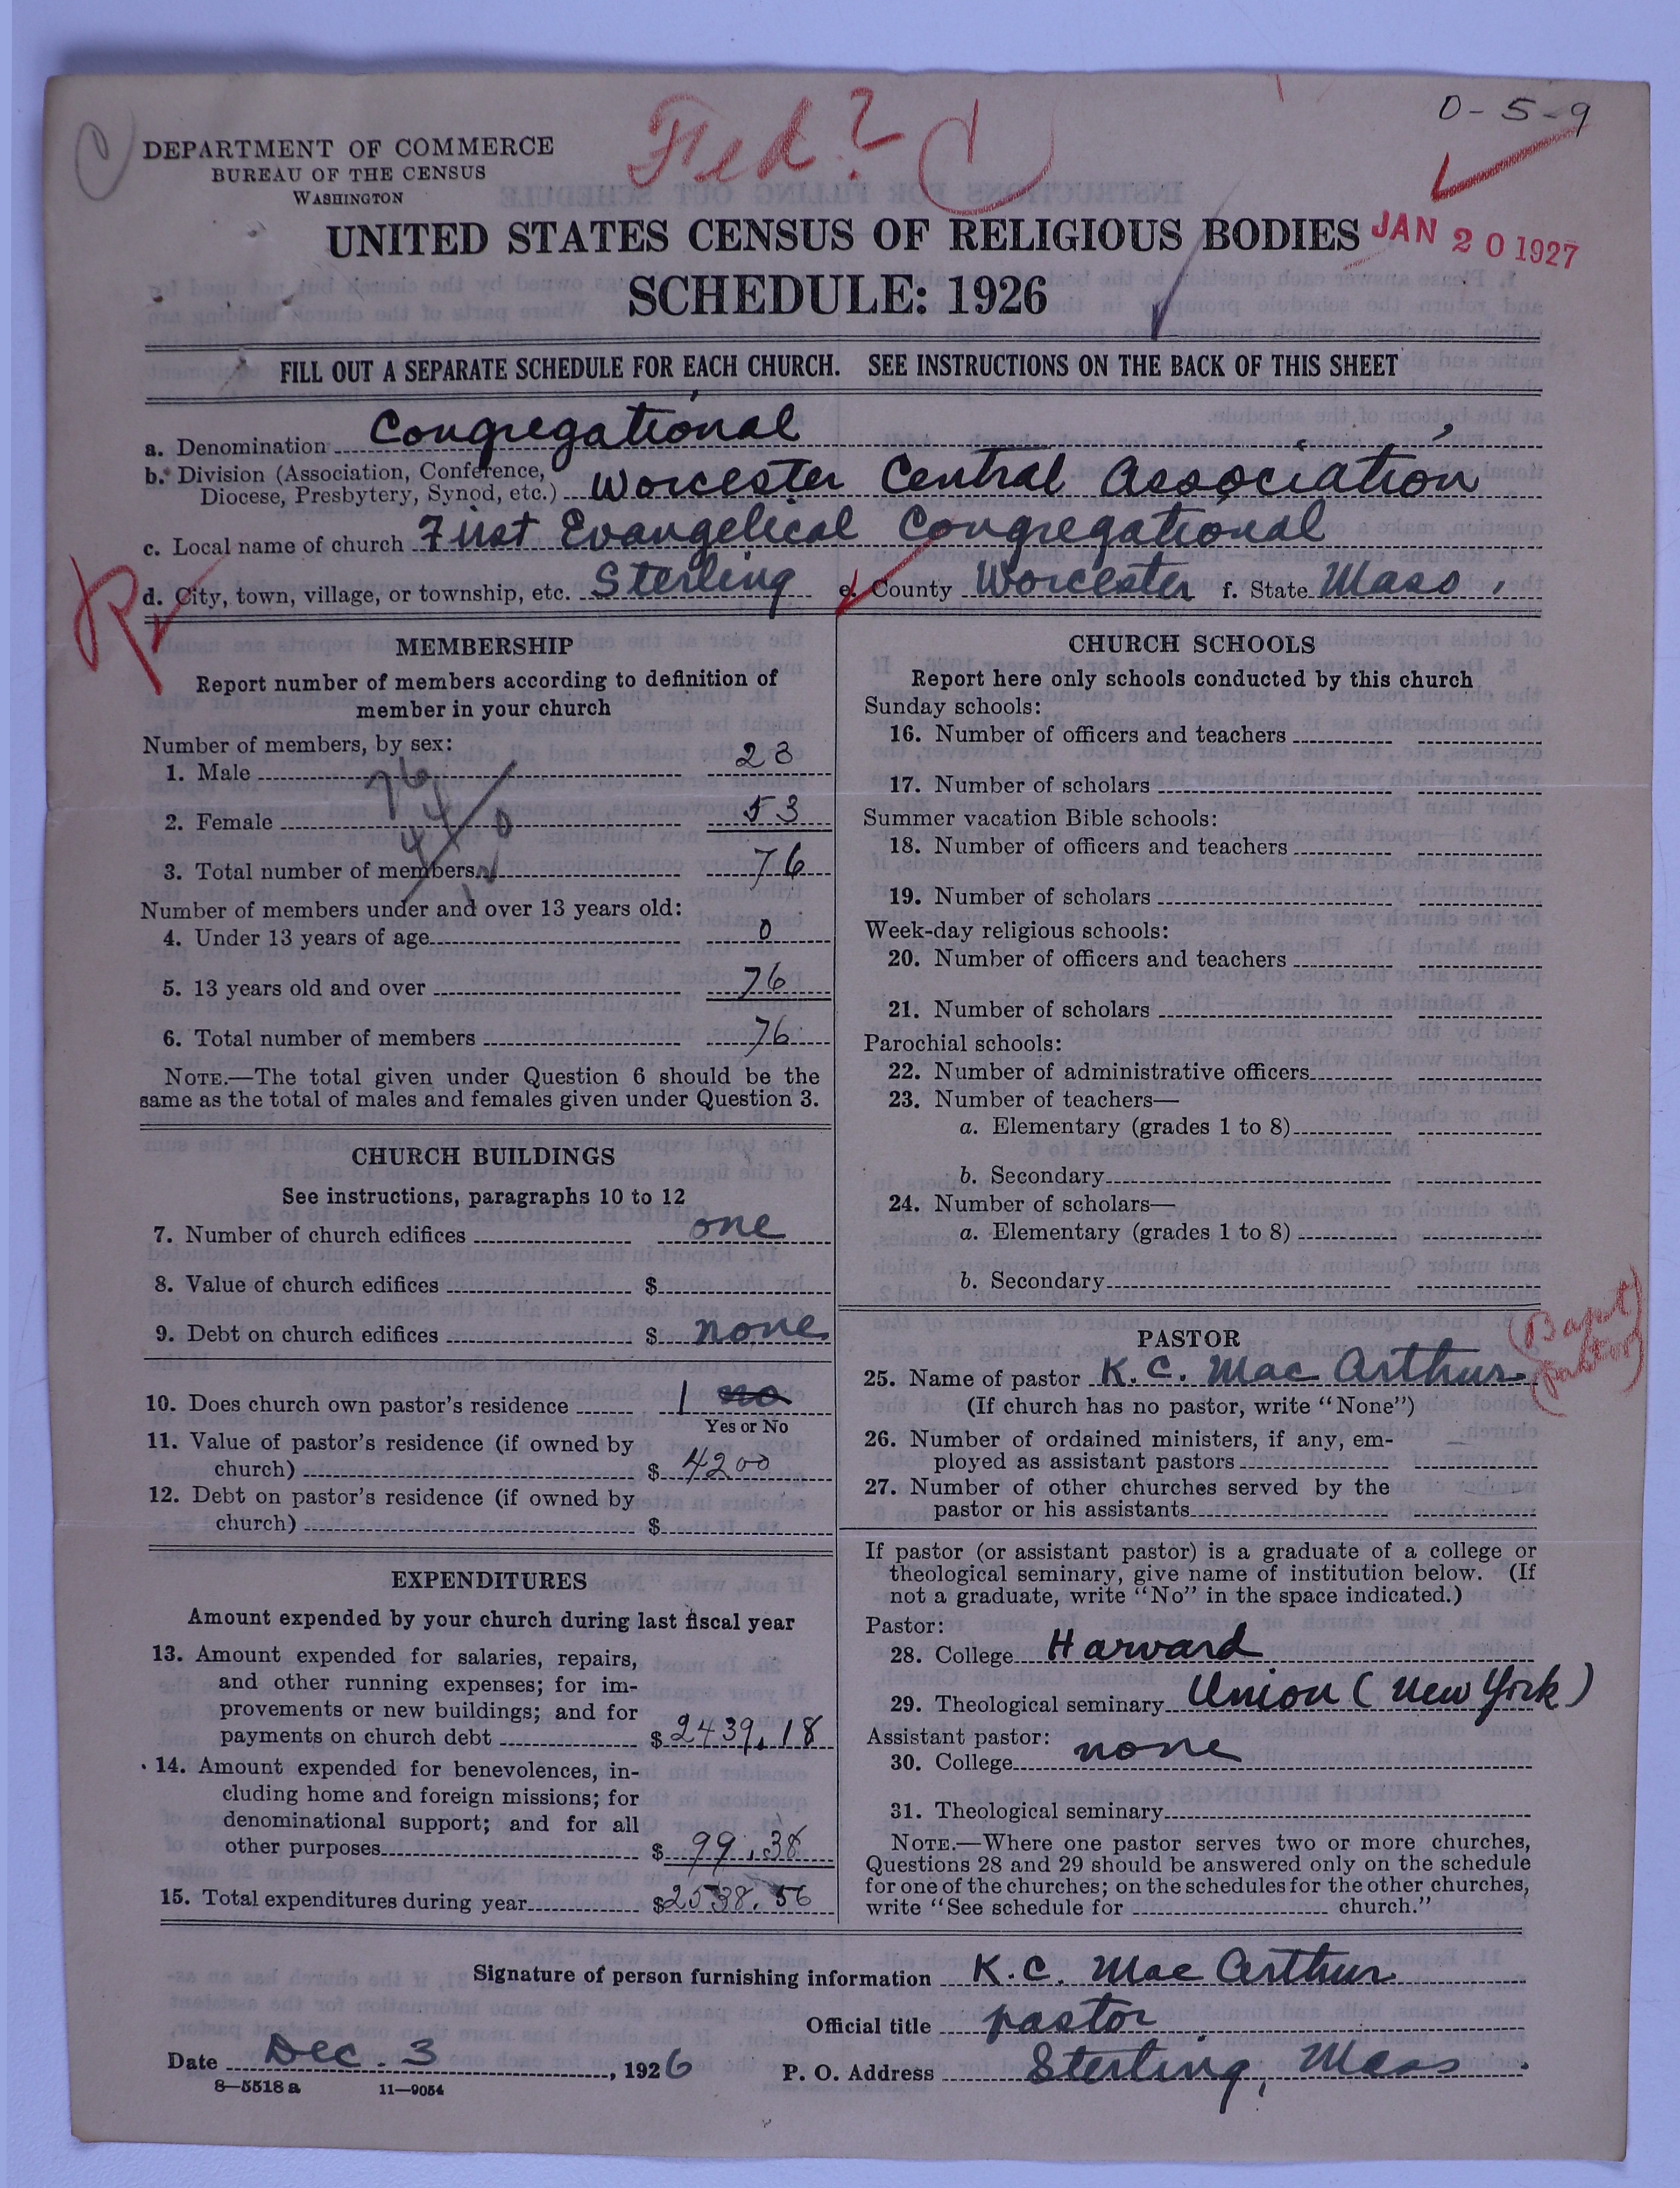 0-5-9
DEPARTMENT OF COMMERCE
BUREAU OF THE CENSUS
WASHINGTON
Fed?
UNITED STATES CENSUS OF RELIGIOUS BODIES
JAN 20 1927
SCHEDULE: 1926
FILL OUT A SEPARATE SCHEDULE FOR EACH CHURCH. SEE INSTRUCTIONS ON THE BACK OF THIS SHEET
a. Denomination Congregational
b. Division (Association, Conference,
Diocese, Presbytery, Synod, etc.) Worcester Central Association
c. Local name of church First Evangelical Congregational
d. City, town, village, or township, etc. Sterling e. County Worcester f. State Mass.
MEMBERSHIP
Report number of members according to definition of
member in your church
Number of members, by sex:
1. Male 23
2. Female 53
3. Total number of members 76
Number of members under and over 13 years old:
4. Under 13 years of age 0
5. 13 years old and over 76
6. Total number of members 76
NOTE.—The total given under Question 6 should be the
same as the total of males and females given under Question 3.
CHURCH BUILDINGS
See instructions, paragraphs 10 to 12
7. Number of church edifices one
8. Value of church edifices $
9. Debt on church edifices $ none
10. Does church own pastor's residence 1 no
Yes or No
11. Value of pastor's residence (if owned by
church) $ 4200
12. Debt on pastor's residence (if owned by
church) $
EXPENDITURES
Amount expended by your church during last fiscal year
13. Amount expended for salaries, repairs,
and other running expenses; for im-
provements or new buildings; and for
payments on church debt $2439.18
14. Amount expended for benevolences, in-
cluding home and foreign missions; for
denominational support; and for all
other purposes $ 99.38
15. Total expenditures during year $2538.56
CHURCH SCHOOLS
Report here only schools conducted by this church
Sunday schools:
16. Number of officers and teachers
17. Number of scholars
Summer vacation Bible schools:
18. Number of officers and teachers
19. Number of scholars
Week-day religious schools:
20. Number of officers and teachers
21. Number of scholars
Parochial schools:
22. Number of administrative officers
23. Number of teachers—
a. Elementary (grades 1 to 8)
b. Secondary
24. Number of scholars—
a. Elementary (grades 1 to 8)
b. Secondary
PASTOR
(Bapt
pastor)
25. Name of pastor K. C. MacArthur
(If church has no pastor, write "None")
26. Number of ordained ministers, if any, em-
ployed as assistant pastors
27. Number of other churches served by the
pastor or his assistants
If pastor (or assistant pastor) is a graduate of a college or
theological seminary, give name of institution below. (If
not a graduate, write "No" in the space indicated.)
Pastor:
28. College Harvard
29. Theological seminary Union (New York)
Assistant pastor:
30. College none
31. Theological seminary
NOTE.—Where one pastor serves two or more churches,
Questions 28 and 29 should be answered only on the schedule
for one of the churches; on the schedules for the other churches,
write "See schedule for church."
Signature of person furnishing information K. C. MacArthur
Official title pastor
Date Dec. 3, 1926 P. O. Address Sterling, Mass.
8—5518 a 11—9054